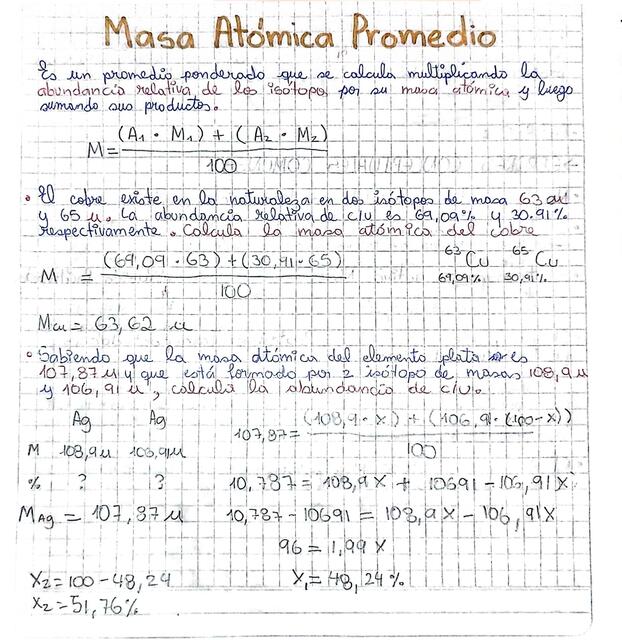 Masa Atómica Promedio
Es un promedio ponderado que se calcula multiplicando la
abundancia relativa de los isótopos por su masa atómica y luego
sumando sus productos.
M = (A₁ · M₁) + (A₂ · M₂)
100
• El cobre existe en la naturaleza en dos isótopos de masa 63 u
y 65 u. La abundancia relativa de c/u es 69,09% y 30.91%
respectivamente. Calcula la masa atómica del cobre
M = (69,09 · 63) + (30,91 · 65)
100
⁶³Cu ⁶⁵Cu
69,09% 30,91%
Mcu = 63,62 u
• Sabiendo que la masa atómica del elemento plata es
107,87 u y que está formado por 2 isótopo de masas 108,9 u
y 106,91 u, calcula la abundancia de c/u.
Ag Ag
M 108,9u 106,91u
% ? ?
MAg = 107,87 u
107,87 = (108,9 · x) + (106,91 · (100-x))
100
10,787 = 108,9x + 10691 - 106,91x
10,787 - 10691 = 108,9x - 106,91x
96 = 1,99 x
X₁ = 48,24%
X₂ = 100 - 48,24
X₂ = 51,76%